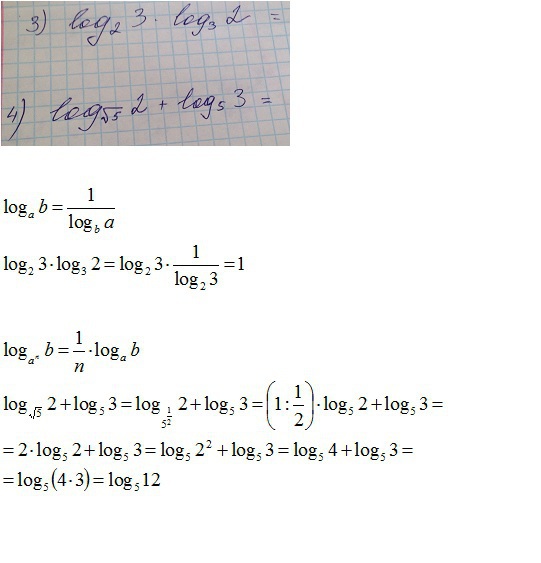 3) log₂ 3 · log₃ 2 =
4) log_√5 2 + log₅ 3 =
logₐ b = 1/(log_b a)
log₂ 3 · log₃ 2 = log₂ 3 · 1/(log₂ 3) = 1
log_(aⁿ) b = 1/n · logₐ b
log_√5 2 + log₅ 3 = log_(5^(1/2)) 2 + log₅ 3 = (1 : 1/2) · log₅ 2 + log₅ 3 =
= 2 · log₅ 2 + log₅ 3 = log₅ 2² + log₅ 3 = log₅ 4 + log₅ 3 =
= log₅ (4 · 3) = log₅ 12